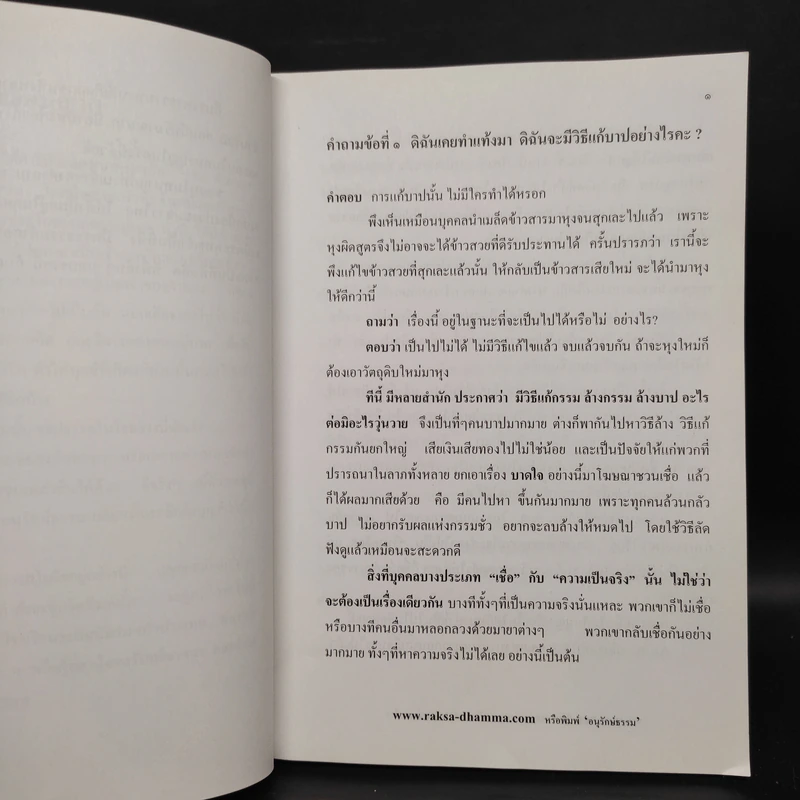 ๑
คำถามข้อที่ ๑ ดิฉันเคยทำแท้งมา ดิฉันจะมีวิธีแก้บาปอย่างไรคะ ?
คำตอบ การแก้บาปนั้น ไม่มีใครทำได้หรอก
พึงเห็นเหมือนบุคคลนำเมล็ดข้าวสารมาหุงจนสุกเละไปแล้ว เพราะ
หุงผิดสูตรจึงไม่อาจจะได้ข้าวสวยที่ดีรับประทานได้ ครั้นปรารภว่า เรานี้จะ
พึงแก้ไขข้าวสวยที่สุกเละแล้วนั้น ให้กลับเป็นข้าวสารเสียใหม่ จะได้นำมาหุง
ให้ดีกว่านี้
ถามว่า เรื่องนี้ อยู่ในฐานะที่จะเป็นไปได้หรือไม่ อย่างไร?
ตอบว่า เป็นไปไม่ได้ ไม่มีวิธีแก้ไขแล้ว จบแล้วจบกัน ถ้าจะหุงใหม่ก็
ต้องเอาวัตถุดิบใหม่มาหุง
ทีนี้ มีหลายสำนัก ประกาศว่า มีวิธีแก้กรรม ล้างกรรม ล้างบาป อะไร
ต่อมิอะไรวุ่นวาย จึงเป็นที่ๆคนบาปมากมาย ต่างก็พากันไปหาวิธีล้าง วิธีแก้
กรรมกันยกใหญ่ เสียเงินเสียทองไปไม่ใช่น้อย และเป็นปัจจัยให้แก่พวกที่
ปรารถนาในลาภทั้งหลาย ยกเอาเรื่อง บาดใจ อย่างนี้มาโฆษณาชวนเชื่อ แล้ว
ก็ได้ผลมากเสียด้วย คือ มีคนไปหา ขึ้นกันมากมาย เพราะทุกคนล้วนกลัว
บาป ไม่อยากรับผลแห่งกรรมชั่ว อยากจะลบล้างให้หมดไป โดยใช้วิธีลัด
ฟังดูแล้วเหมือนจะสะดวกดี
สิ่งที่บุคคลบางประเภท “เชื่อ” กับ “ความเป็นจริง” นั้น ไม่ใช่ว่า
จะต้องเป็นเรื่องเดียวกัน บางทีทั้งๆที่เป็นความจริงนั่นแหละ พวกเขาก็ไม่เชื่อ
หรือบางทีคนอื่นมาหลอกลวงด้วยมายาต่างๆ พวกเขากลับเชื่อกันอย่าง
มากมาย ทั้งๆที่หาความจริงไม่ได้เลย อย่างนี้เป็นต้น
www.raksa-dhamma.com หรือพิมพ์ ‘อนุรักษ์ธรรม’